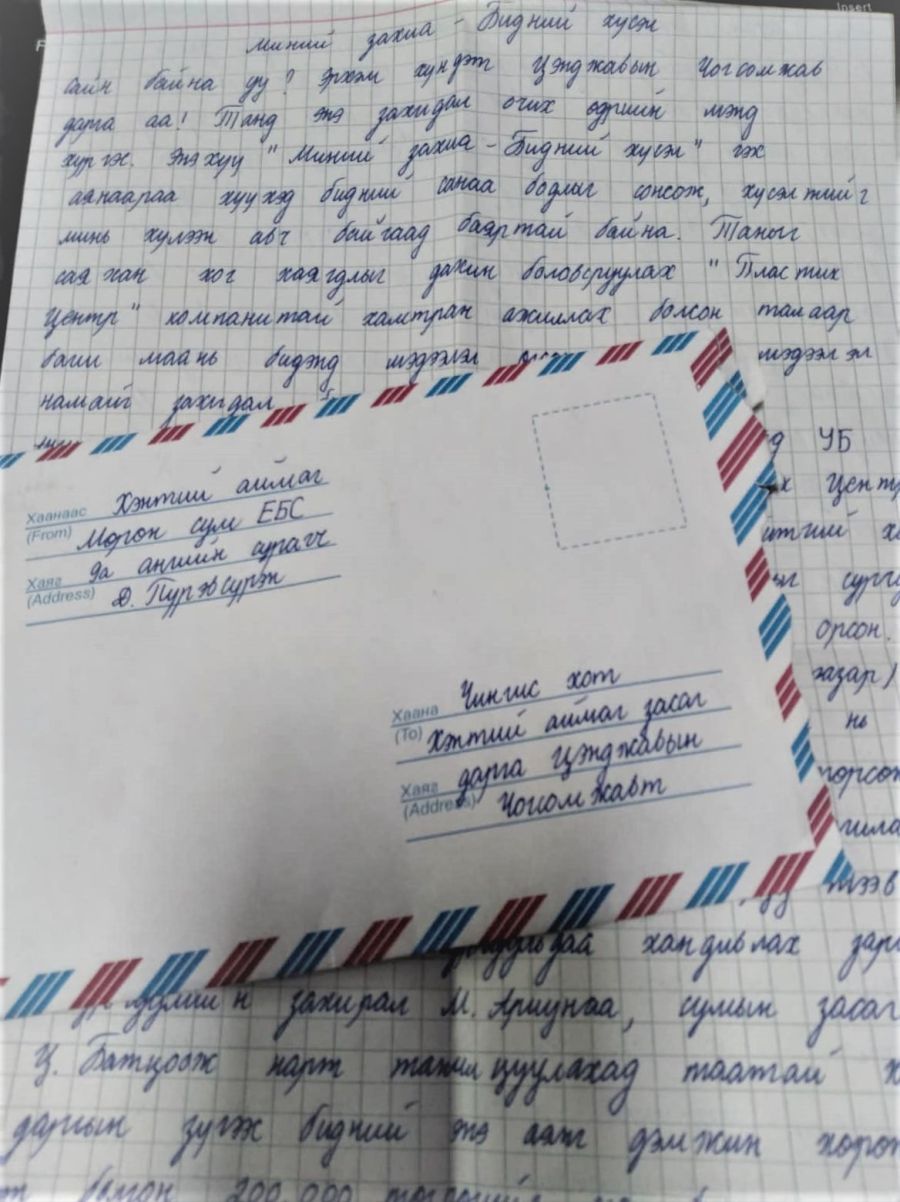 Insert
Миний захиа - Бидний хүсэл
Сайн байна уу? Эрхэм хүндэт Цэнджавын Чогсомжав
дарга аа! Танд энэ захидал очих өдрийн мэнд
хүргэе. Энэхүү "Миний захиа - Бидний хүсэл" гэх
аянаараа хүүхэд бидний санаа бодлыг сонсож, хүсэлтийг
минь хүлээн авч байгаад баяртай байна. Таныг
саяхан хог хаягдлыг дахин боловсруулах "Пластик
Центр" компанитай хамтран ажиллах болсон талаар
багш маань бидэнд мэдээлэл мэдээлэл
намайг захидал
УБ
орсон.
газар)
нь
Хаанаас Хэнтий аймаг
(From) Мөрөн сум ЕБС
Хаяг 9а ангийн сурагч
(Address) Д. Пүрэвсүрэн
Хаана Чингис хот
(To) Хэнтий аймаг засаг
Хаяг дарга Цэнджавын
(Address) Чогсомжавт
хандивлах
захирал М. Ариунаа, сумын засаг
Ц. Батцоож нарт танилцуулахад таатай
даргын зүгээс бидний энэ ажлыг дэмжин
болгон 200.000 төгрөгийг